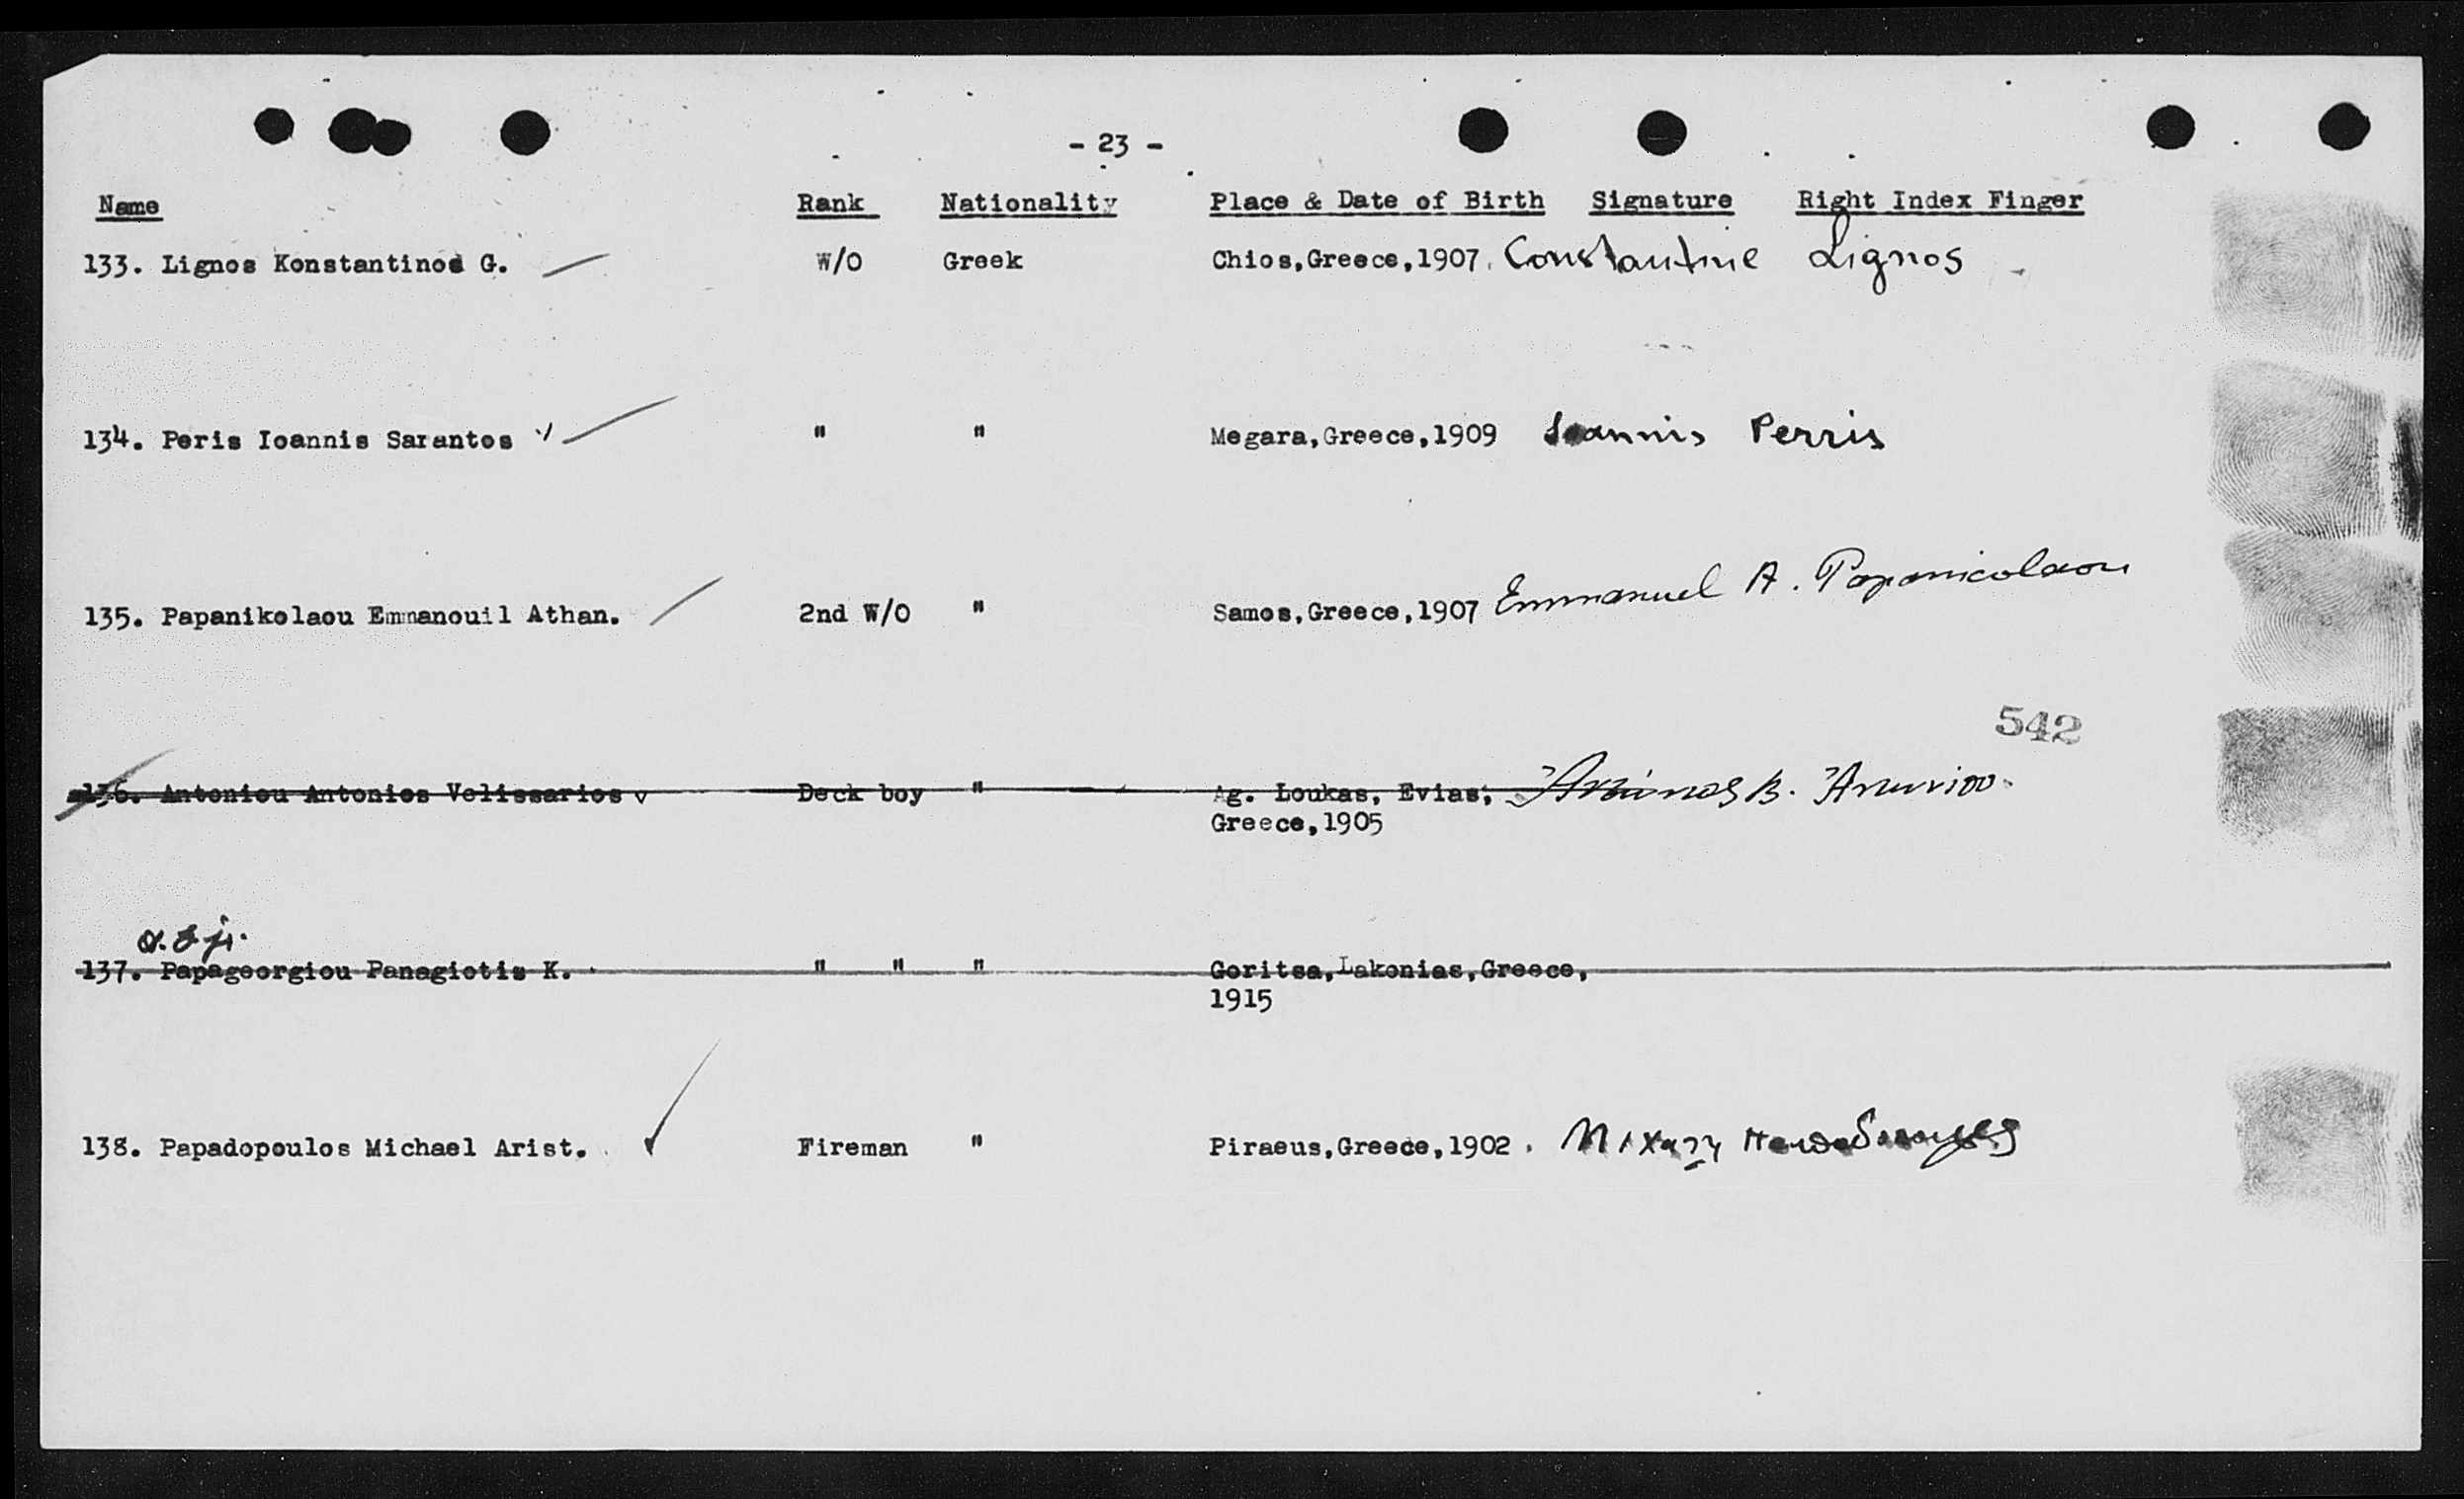 - 23 -
Name Rank Nationality Place & Date of Birth Signature Right Index Finger
133. Lignos Konstantinos G. W/O Greek Chios,Greece,1907. Constantine Lignos
134. Peris Ioannis Sarantos " " Megara,Greece,1909 Ioannis Perris
135. Papanikolaou Emmanouil Athan. 2nd W/O " Samos,Greece,1907 Emmanuel A. Papanicolaou
542
136. Antoniou Antonios Velissarios Deck boy " Ag. Loukas, Evias, Ἀντώνιος Β. Ἀντωνίου
Greece,1905
137. Papageorgiou Panagiotis K. " " " Goritsa,Lakonias,Greece,
1915
138. Papadopoulos Michael Arist. Fireman " Piraeus,Greece,1902.